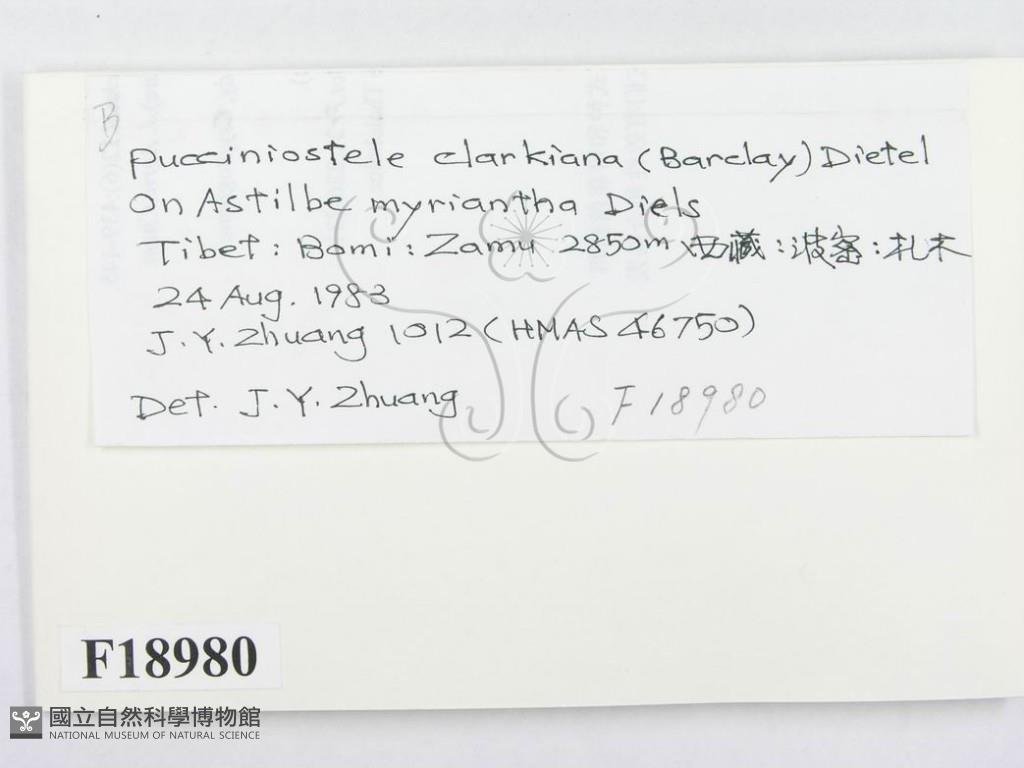 B
Pucciniostele clarkiana (Barclay) Dietel
On Astilbe myriantha Diels
Tibet: Bomi: Zamu 2850m 西藏:波密:札木
24 Aug. 1983
J.Y. Zhuang 1012 (HMAS 46750)
Det. J.Y. Zhuang F18980
F18980
國立自然科學博物館
NATIONAL MUSEUM OF NATURAL SCIENCE